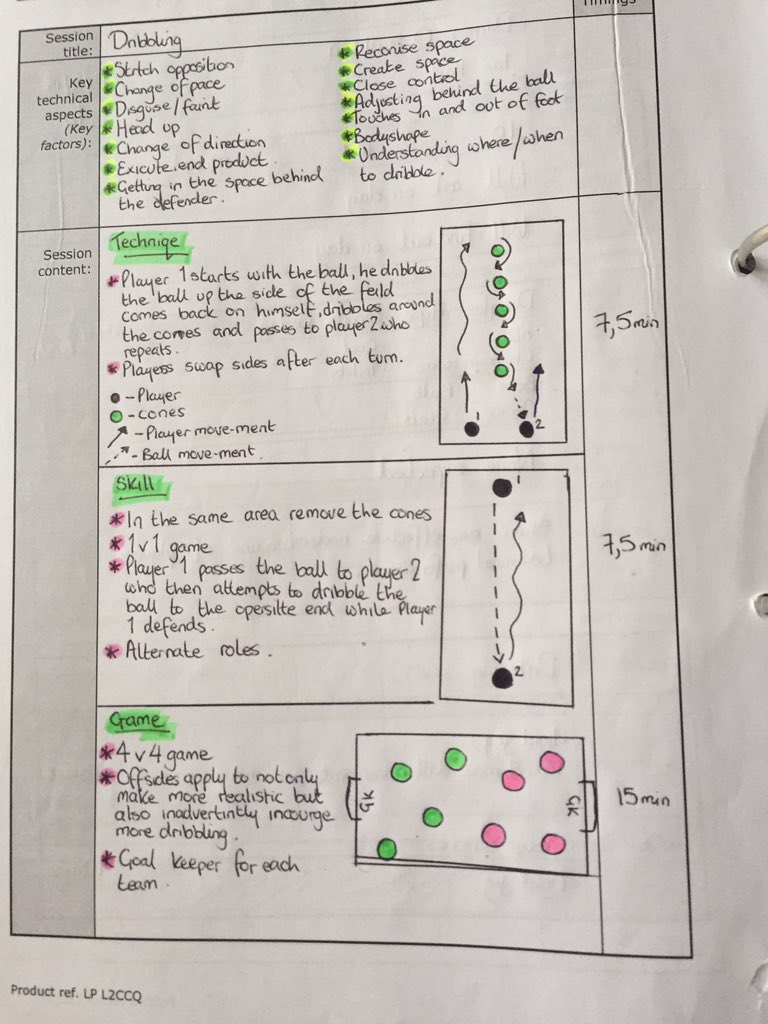 Timings
Session title:
Dribbling
Key technical aspects (Key factors):
* Stritch opposition
* Change of pace
* Disguise/faint
* Head up
* Change of direction
* Exicute end product.
* Getting in the space behind
the defender.
* Reconise space
* Create space
* Close control
* Adjusting behind the ball
* Touches in and out of foot
* Bodyshape
* Understanding where/when
to dribble.
Session content:
Techniqe
* Player 1 starts with the ball, he dribbles
the ball up the side of the feild
comes back on himself, dribbles around
the cones and passes to player 2 who
repeats.
* Players swap sides after each turn.
- Player
- cones
- Player move-ment
- Ball move-ment.
1
2
7,5 min
Skill
* In the same area remove the cones
* 1 v 1 game
* Player 1 passes the ball to player 2
who then attempts to dribble the
ball to the opersilte end while Player
1 defends.
* Alternate roles.
1
2
7,5 min
Game
* 4 v 4 game
* Offsides apply to not only
make more realistic but
also inadvertintly incourge
more dribbling.
* Goal keeper for each
team.
GK
GK
15 min
Product ref. LP L2CCQ